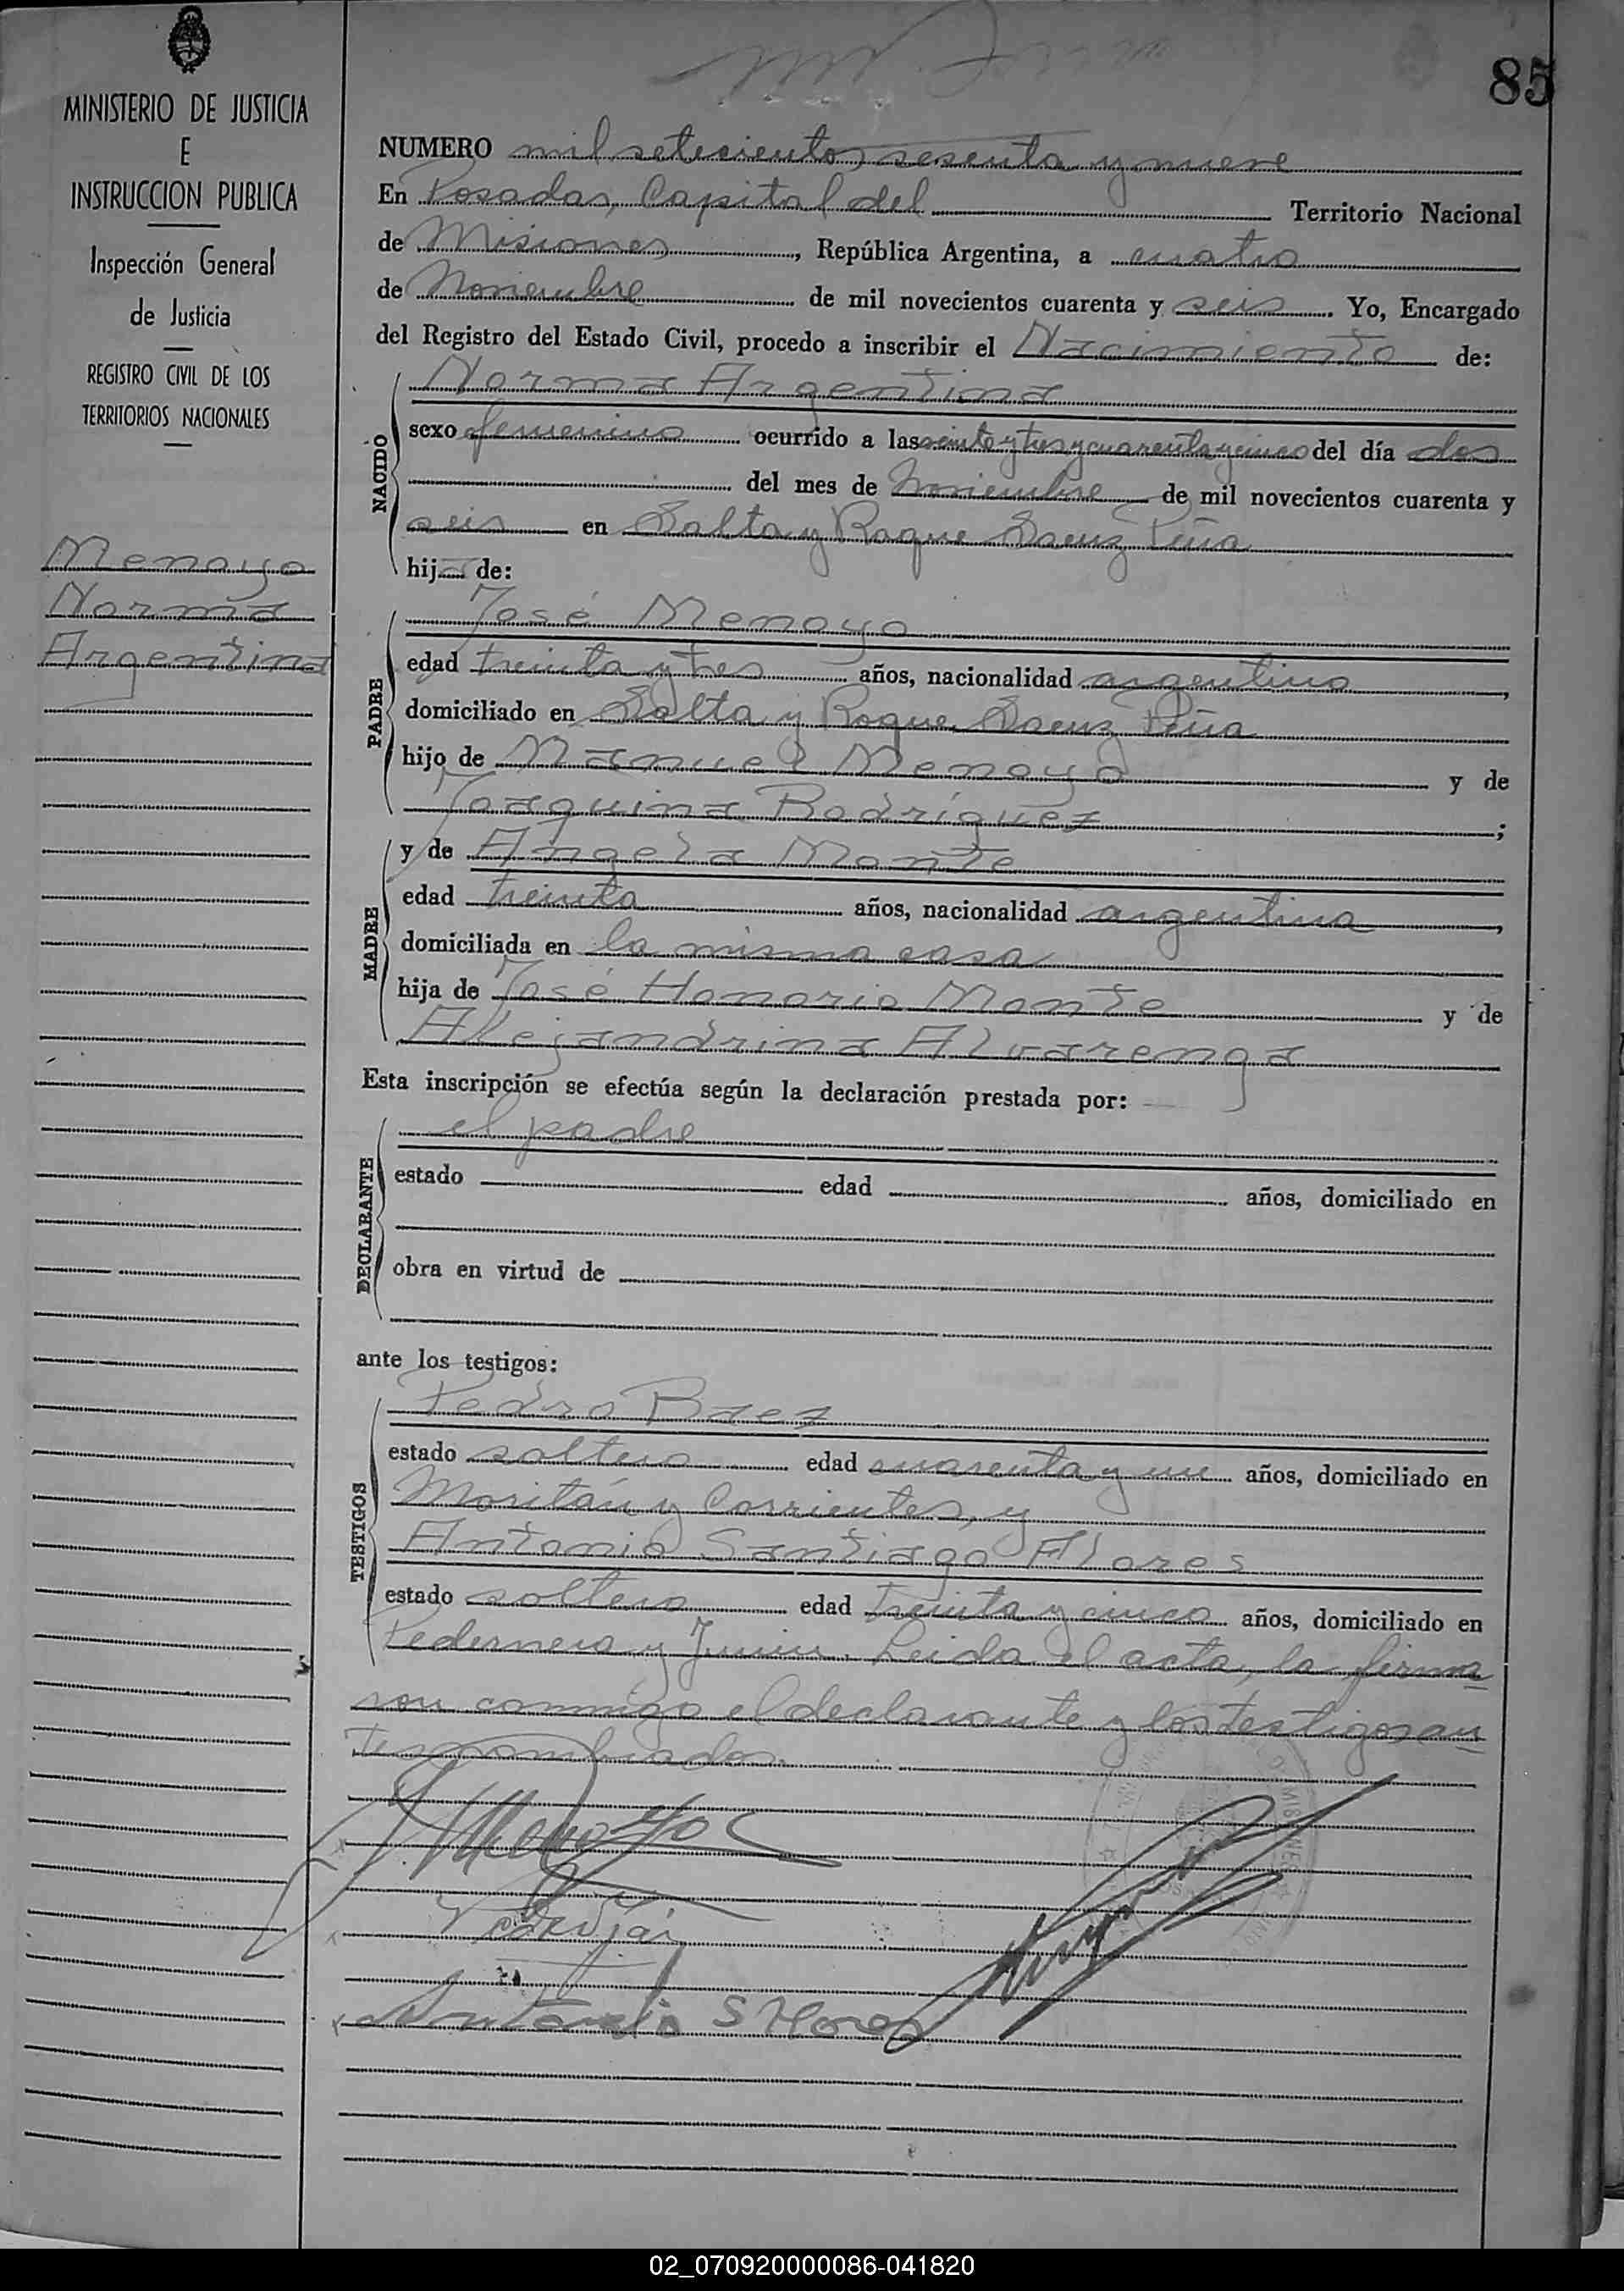 85
MINISTERIO DE JUSTICIA
E
INSTRUCCION PUBLICA
Inspección General
de Justicia
REGISTRO CIVIL DE LOS
TERRITORIOS NACIONALES
Menoyo
Norma
Argentina
NUMERO mil setecientos sesenta y nueve
En Posadas, Capital del Territorio Nacional
de Misiones, República Argentina, a cuatro
de Noviembre de mil novecientos cuarenta y seis. Yo, Encargado
del Registro del Estado Civil, procedo a inscribir el Nacimiento de:
NACIDO
Norma Argentina
sexo femenino ocurrido a las veinte y tres y cuarenta y cinco del día dos
del mes de Noviembre de mil novecientos cuarenta y
seis en Salta y Roque Saenz Peña
hija de:
PADRE
José Menoyo
edad treinta y tres años, nacionalidad argentino,
domiciliado en Salta y Roque Saenz Peña
hijo de Manuel Menoyo y de
Joaquina Rodríguez;
MADRE
y de Angela Monte
edad treinta años, nacionalidad argentina,
domiciliada en la misma casa
hija de José Honorio Monte y de
Alejandrina Alvarenga
Esta inscripción se efectúa según la declaración prestada por:
DECLARANTE
el padre
estado edad años, domiciliado en
obra en virtud de
ante los testigos:
TESTIGOS
Pedro Baez
estado soltero edad cuarenta y un años, domiciliado en
Moritán y Corrientes, y
Antonio Santiago Flores
estado soltero edad treinta y cinco años, domiciliado en
Pedernera y Junin. Leida el acta, la firma
ron conmigo el declarante y los testigos an
tes nombrados.
J. Menoyo
Antonio S Flores
02_070920000086-041820